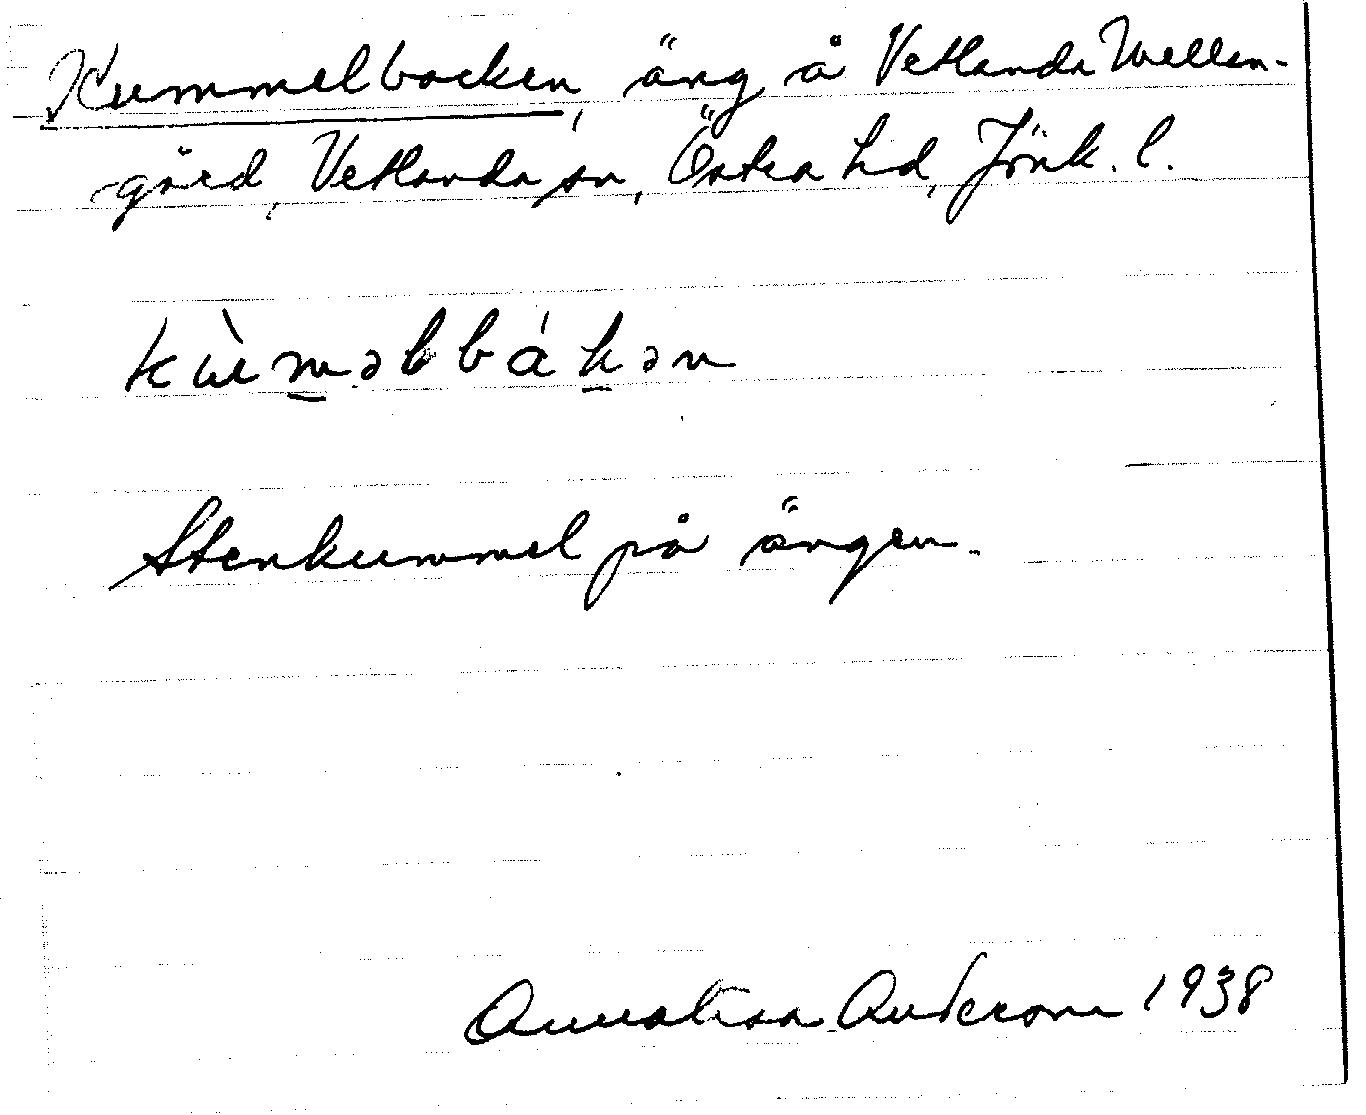 Kummelbacken, äng å Vetlanda Mellan-
gård, Vetlanda sn, Östra hd, Jönk. l.
kùməlbákən
Stenkummel på ängen.
Annalisa Anderson 1938